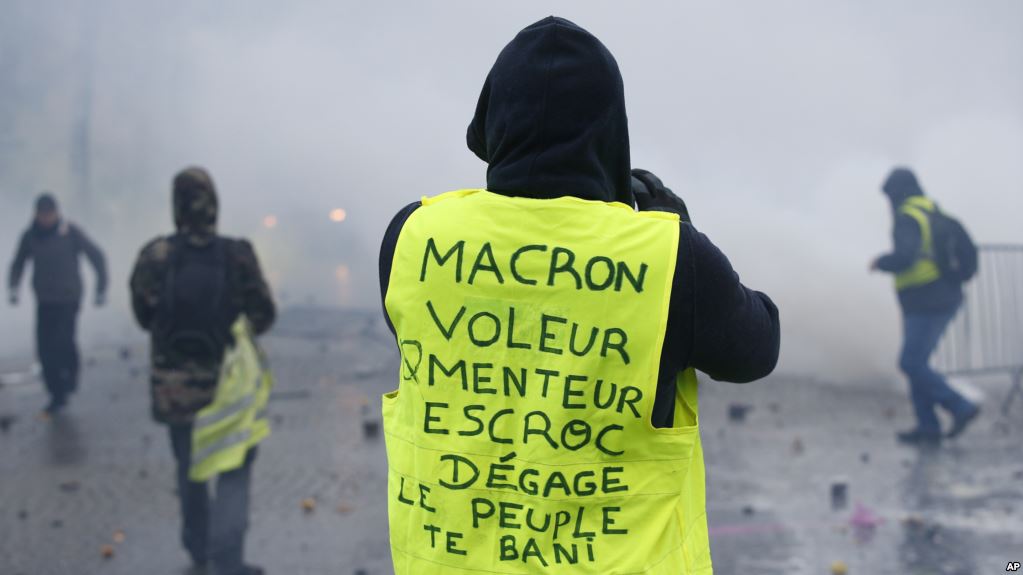 MACRON
VOLEUR
MENTEUR
ESCROC
DÉGAGE
LE PEUPLE
TE BANI
AP